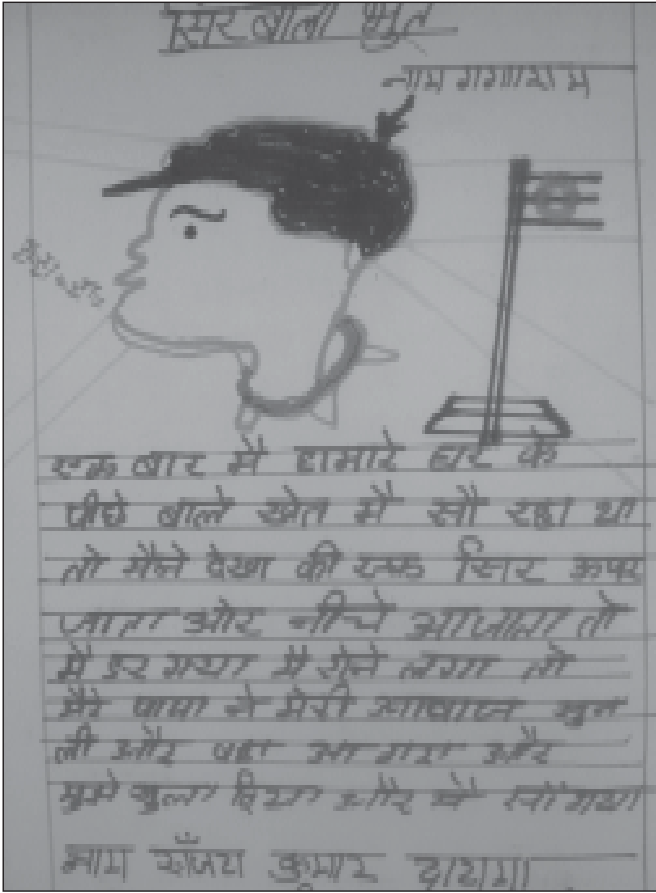 सिर बाला भुत
नाम गंगाराम
एक बार मै हामारे घर के
पीछे बाले खेत मै सौ रहा था
तो मैने देखा की एक सिर ऊपर
जाता ओर नीचे आजाता तो
मै डर गया मै रोने लगा तो
मेरे पापा ने मेरी आवाज सुन
ली और वहा आ गए और
मुझे सुला दिया और मै सो गया
नाम संजय कुमार दायमा